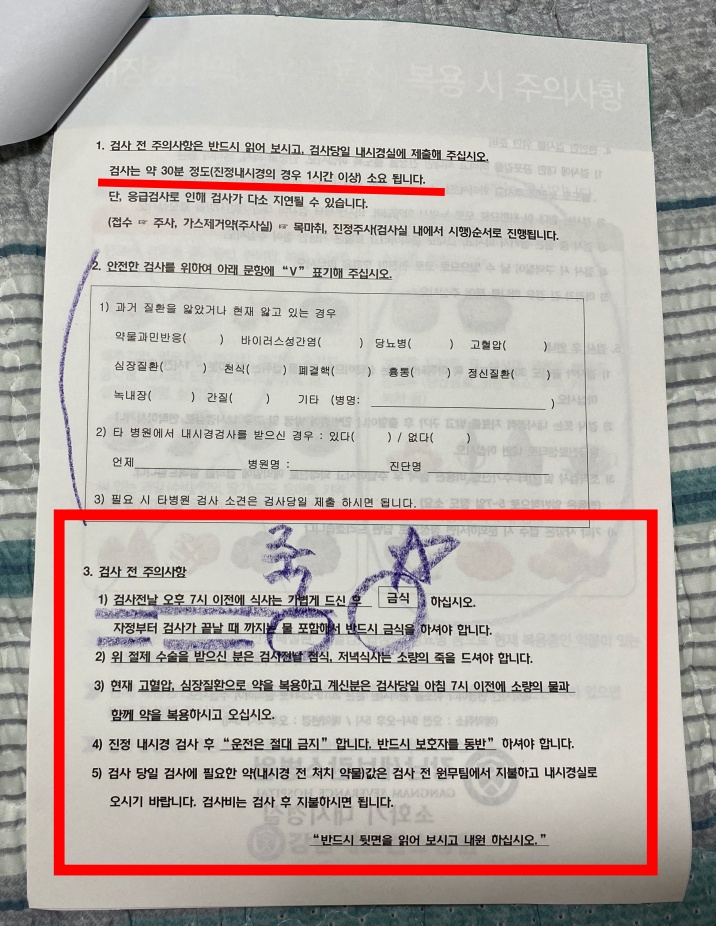 1. 검사 전 주의사항은 반드시 읽어 보시고, 검사당일 내시경실에 제출해 주십시오.
검사는 약 30분 정도(진정내시경의 경우 1시간 이상) 소요 됩니다.
단, 응급검사로 인해 검사가 다소 지연될 수 있습니다.
(접수 ☞ 주사, 가스제거약(주사실) ☞ 목마취, 진정주사(검사실 내에서 시행)순서로 진행됩니다.
2. 안전한 검사를 위하여 아래 문항에 “V” 표기해 주십시오.
1) 과거 질환을 앓았거나 현재 앓고 있는 경우
약물과민반응( ) 바이러스성간염( ) 당뇨병( ) 고혈압( )
심장질환( ) 천식( ) 폐결핵( ) 흉통( ) 정신질환( )
녹내장( ) 간질( ) 기타 (병명: )
2) 타 병원에서 내시경검사를 받으신 경우 : 있다( ) / 없다( )
언제 병원명 : 진단명
3) 필요 시 타병원 검사 소견은 검사당일 제출 하시면 됩니다.
3. 검사 전 주의사항
죽
1) 검사전날 오후 7시 이전에 식사는 가볍게 드신 후 금식 하십시오.
자정부터 검사가 끝날 때 까지는 물 포함해서 반드시 금식을 하셔야 합니다.
2) 위 절제 수술을 받으신 분은 검사전날 점식, 저녁식사는 소량의 죽을 드셔야 합니다.
3) 현재 고혈압, 심장질환으로 약을 복용하고 계신분은 검사당일 아침 7시 이전에 소량의 물과
함께 약을 복용하시고 오십시오.
4) 진정 내시경 검사 후 “운전은 절대 금지” 합니다. 반드시 보호자를 동반” 하셔야 합니다.
5) 검사 당일 검사에 필요한 약(내시경 전 처치 약물)값은 검사 전 원무팀에서 지불하고 내시경실로
오시기 바랍니다. 검사비는 검사 후 지불하시면 됩니다.
“반드시 뒷면을 읽어 보시고 내원 하십시오.”